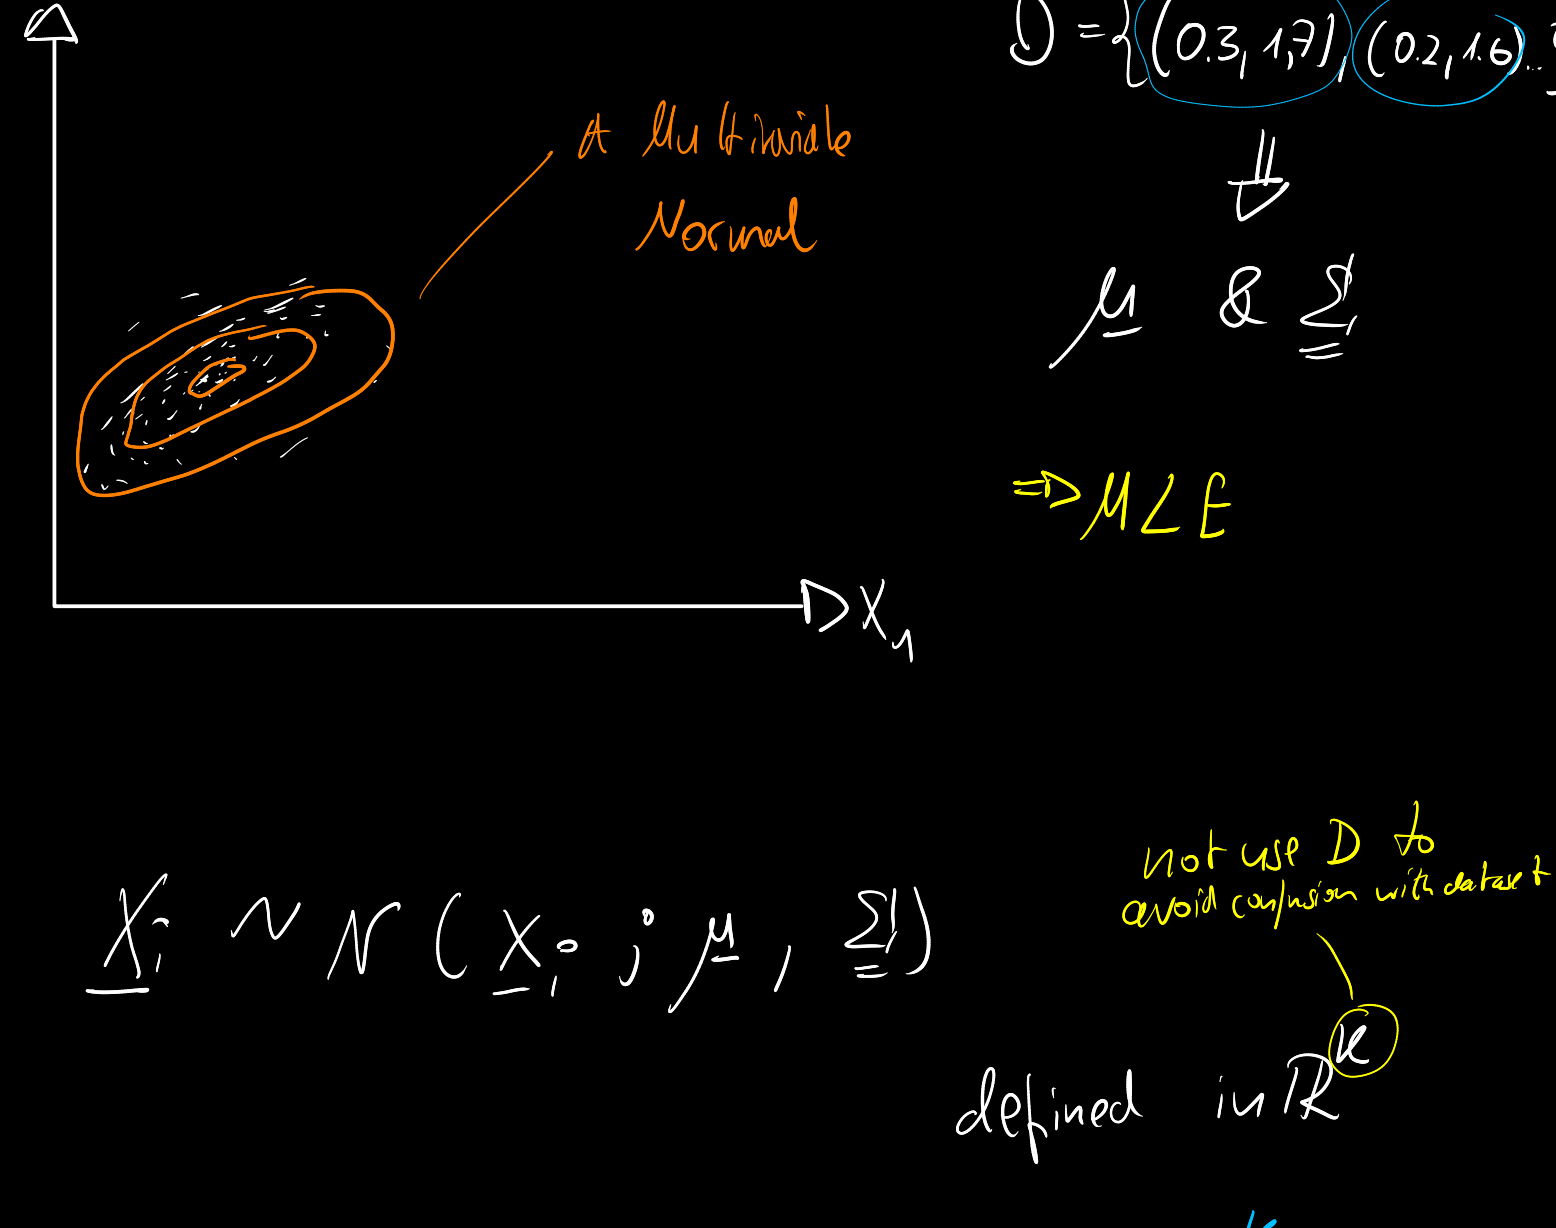 D = {(0.3, 1,7), (0.2, 1.6)...}
A Multivariate
Normal
⇓
μ & Σ
⇒ MLE
X₁
not use D to
avoid confusion with dataset
X_i ~ N(X_i ; μ, Σ)
defined in ℝᵏ